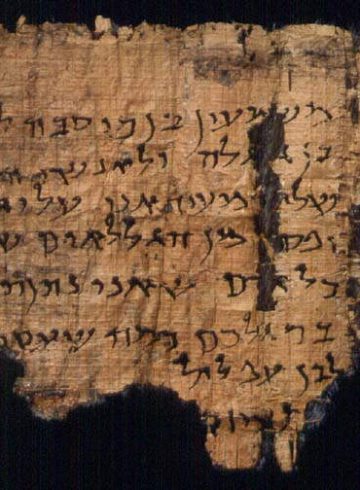 משמעון בן כוסבה ל
בן גלגלה ולאנשי
שלום מעיד אני עלי
יפסד מן הגללאים ש
כל אדם שאני נותן
ברגלכם כמה שעסת
לבן עפלול